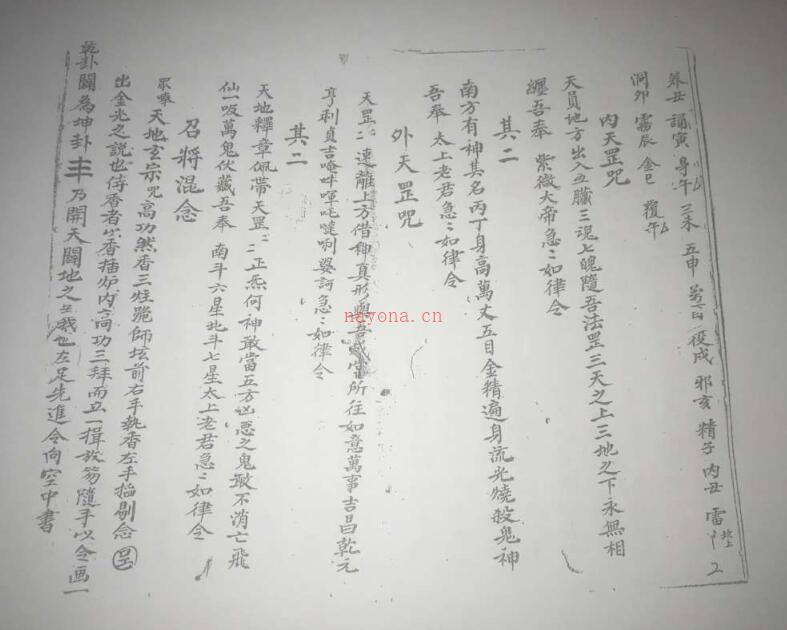 奉丑 誦寅 身午 三未 五申 役戌 邪亥 精子 內丑 雷
洞卯 霧辰 金巳 覆午
內天罡咒
天員地方出入五臟三魂七魄隨吾法罡三天之上三地之下永無相
纏吾奉 紫微大帝急〻如律令
其二
南方有神其名丙丁身高萬丈五目金精遍身流光燒殺鬼神
吾奉 太上老君急〻如律令
外天罡咒
天罡〻速離上方借神真形與吾 所往如意萬事吉昌乾元
亨利貞吉唵吽㖇吒噠唎娑訶急〻如律令
其二
天地釋章佩帶天罡〻正炁何神敢當五方凶惡之鬼敢不消亡飛
仙一吸萬鬼伏藏吾奉 南斗六星北斗七星太上老君急〻如律令
召將混念
眾舉天地玄宗咒高功然香三炷跪師壇前右手執香左手掐劇念
出金光之說也侍香者 香插炉內高功三拜而立一揖放笏隨手以令画一
乾卦闢為坤卦 乃開天闢地之 左足先進令向空中書
2
nayona.cn